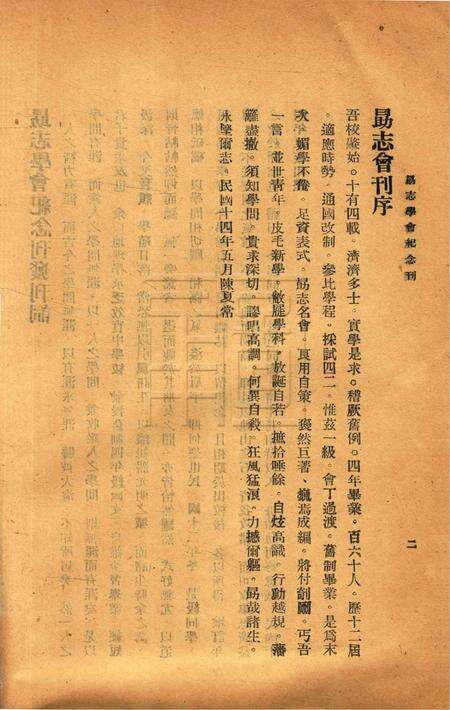 勗志學會紀念刊
二
勗志會刊序
吾校肇始。十有四載。濟濟多士。實學是求。稽厥舊例。四年畢業。百六十人。歷十二屆
。適應時勢。通國改制。參此學程。採試四二。惟茲一級。會丁過渡。舊制畢業。是爲末
次。媚學不倦。足資表式。勗志名會。良用自策。褎然巨著、巍焉成編。將付剞劂。丐吾
一言。並世靑年。皮毛新學。敝屣學科。放誕自若。摭拾唾餘。自炫高識。行動越規。藩
籬盡撤。須知學問。貴求深切。謬唱高調。何異自殺。狂風猛浪。力撼爾軀。勗哉諸生。
永堅爾志。民國十四年五月陳夏常